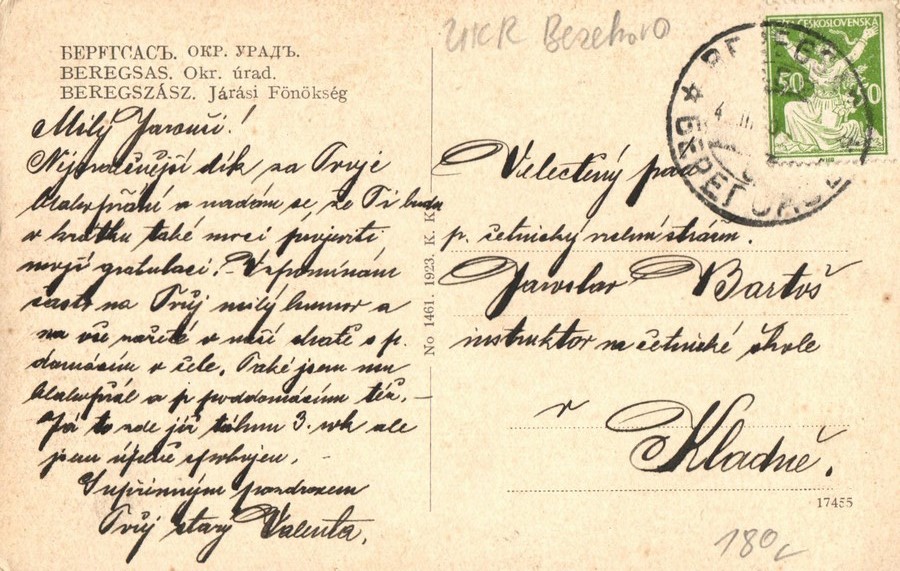 UKR Berehovo
БЕРЕГСАСЪ. ОКР. УРАДЪ.
BEREGSAS. Okr. úrad.
BEREGSZÁSZ. Járási Fönökség
ČESKOSLOVENSKA
50 50
Milý Jarouši!
Nejsrdečnější dík za Tvoje
blahopřání a nadám se, že Ti budu
v krátku také moci projeviti
moji gratulaci! Vzpomínám
často na Tvůj milý humor a
na vše zažité v naší chatě s p.
domácím v čele. Také jsem mu
blahopřál a p. poddomácím též. –
Já to zde již táhnu 3. rok ale
jsem úplně spokojen.
S upřímným pozdravem
Tvůj starý Valenta.
No 1461. 1923. K. K.
Velectěný pan
p. četnický
Jaroslav Bartoš
instruktor na četnické škole
v
Kladně.
17455
180,-